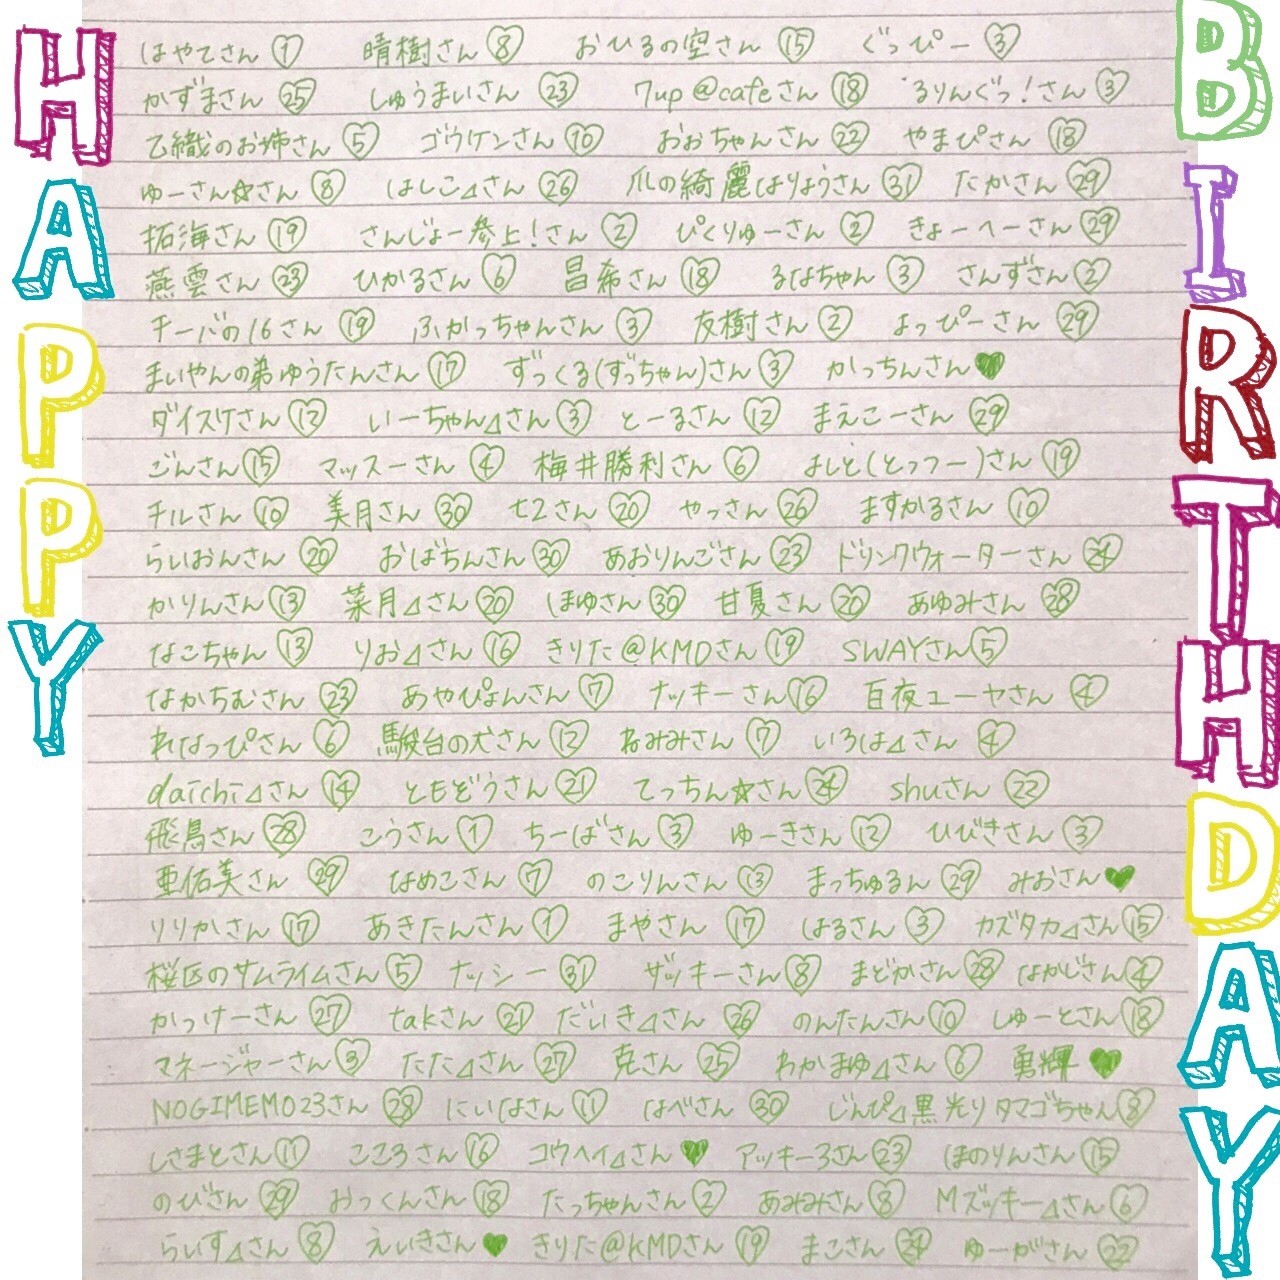 HAPPY
BIRTHDAY
はやてさん ① 晴樹さん ⑧ おひるの空さん ⑮ ぐっぴー ③
かずまさん ㉕ しゅうまいさん ㉓ 7up@cafeさん ⑱ るりんぐっ!さん ③
乙織のお姉さん ⑤ ゴウケンさん ⑩ おおちゃんさん ㉒ やまぴさん ⑱
ゆーさん☆さん ⑧ はしこ⊿さん ㉖ 爪の綺麗はりょうさん ㉛ たかさん ㉙
拓海さん ⑲ さんじょー参上!さん ② ぴくりゅーさん ② きょーへーさん ㉙
燕雲さん ㉓ ひかるさん ⑥ 昌希さん ⑱ るなちゃん ③ さんずさん ②
チーバの16さん ⑲ ふかっちゃんさん ③ 友樹さん ② よっぴーさん ㉙
まいやんの弟ゆうたんさん ⑰ ずっくる(ずっちゃん)さん ③ かっちんさん ♥
ダイスケさん ⑫ いーちゃん⊿さん ③ とーるさん ⑫ まえこーさん ㉙
ごんさん ⑮ マッスーさん ④ 梅井勝利さん ⑥ よしと(とっつー)さん ⑲
チルさん ⑩ 美月さん ㉚ セ2さん ⑳ やっさん ㉖ ますかるさん ⑩
らいおんさん ⑳ おばちんさん ㉚ あおりんごさん ㉓ ドリンクウォーターさん ㉔
かりんさん ⑬ 菜月⊿さん ⑳ ほゆさん ㉚ 甘夏さん ⑳ あゆみさん ㉘
なこちゃん ⑬ りお⊿さん ⑯ きりた@KMDさん ⑲ SWAYさん ⑤
なかちむさん ㉓ あやぴょんさん ⑦ ナッキーさん ⑯ 百夜ユーヤさん ④
れなっぴさん ⑥ 駿台の犬さん ⑫ ねみみさん ⑦ いろは⊿さん ④
daichi⊿さん ⑭ ともぞうさん ㉑ てっちん☆さん ㉔ shuさん ㉒
飛鳥さん ㉘ こうさん ① ちーばさん ③ ゆーきさん ⑫ ひびきさん ③
亜佑美さん ㉙ なめこさん ⑦ のこりんさん ⑬ まっちゅるん ㉙ みおさん ♥
りりかさん ⑰ あきたんさん ① まやさん ⑰ はるさん ③ カズタカ⊿さん ⑮
桜区のサムライムさん ⑤ ナッシー ㉛ ザッキーさん ⑧ まどかさん ㉘ なかじさん ④
かっけーさん ㉗ takさん ㉑ だいき⊿さん ㉖ のんたんさん ⑩ しゅーとさん ⑱
マネージャーさん ③ たた⊿さん ㉗ 克さん ㉕ わかまゆ⊿さん ⑥ 勇輝 ♥
NOGIMEMO23さん ㉘ にいなさん ⑪ はべさん ㉚ じんぴ⊿黒光りタマゴちゃん ⑧
しさまとさん ⑪ こころさん ⑯ コウヘイ⊿さん ♥ アッキー3さん ㉓ ほのりんさん ⑮
のびさん ㉙ おっくんさん ⑱ たっちゃんさん ② あみみさん ⑧ Mズッキー⊿さん ⑥
らいす⊿さん ⑧ えいきさん ♥ きりた@KMDさん ⑲ まこさん ㉔ ゆーがさん ㉒